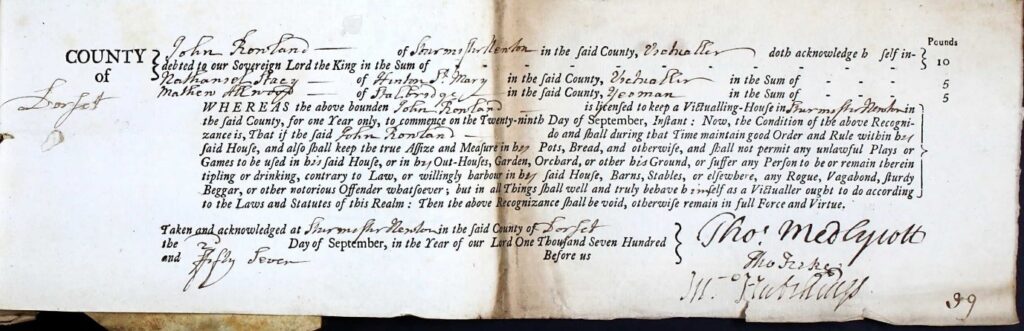 COUNTY of Dorset
John Rowland — of Sturmister Newton in the said County, Victualler doth acknowledge h self in-
debted to our Sovereign Lord the King in the Sum of - - - - - - - - - - Pounds 10
Nathaniel Stacy — of Hinton St. Mary in the said County, Victualler in the Sum of - - 5
Mathew — of Stalbridge in the said County, Yeoman in the Sum of - - 5
WHEREAS the above bounden John Rowland — is licensed to keep a Victualling-House in Sturmister Newton in
the said County, for one Year only, to commence on the Twenty-ninth Day of September, Instant: Now, the Condition of the above Recogni-
zance is, That if the said John Rowland — do and shall during that Time maintain good Order and Rule within his
said House, and also shall keep the true Assize and Measure in his Pots, Bread, and otherwise, and shall not permit any unlawful Plays or
Games to be used in his said House, or in his Out-Houses, Garden, Orchard, or other his Ground, or suffer any Person to be or remain therein
tipling or drinking, contrary to Law, or willingly harbour in his said House, Barns, Stables, or elsewhere, any Rogue, Vagabond, sturdy
Beggar, or other notorious Offender whatsoever; but in all Things shall well and truly behave himself as a Victualler ought to do according
to the Laws and Statutes of this Realm: Then the above Recognizance shall be void, otherwise remain in full Force and Virtue.
Taken and acknowledged at Sturmister Newton in the said County of Dorset
the Day of September, in the Year of our Lord One Thousand Seven Hundred
and Fifty Seven Before us
Thos. Medlycott
Tho
Jno. Hutchings
39